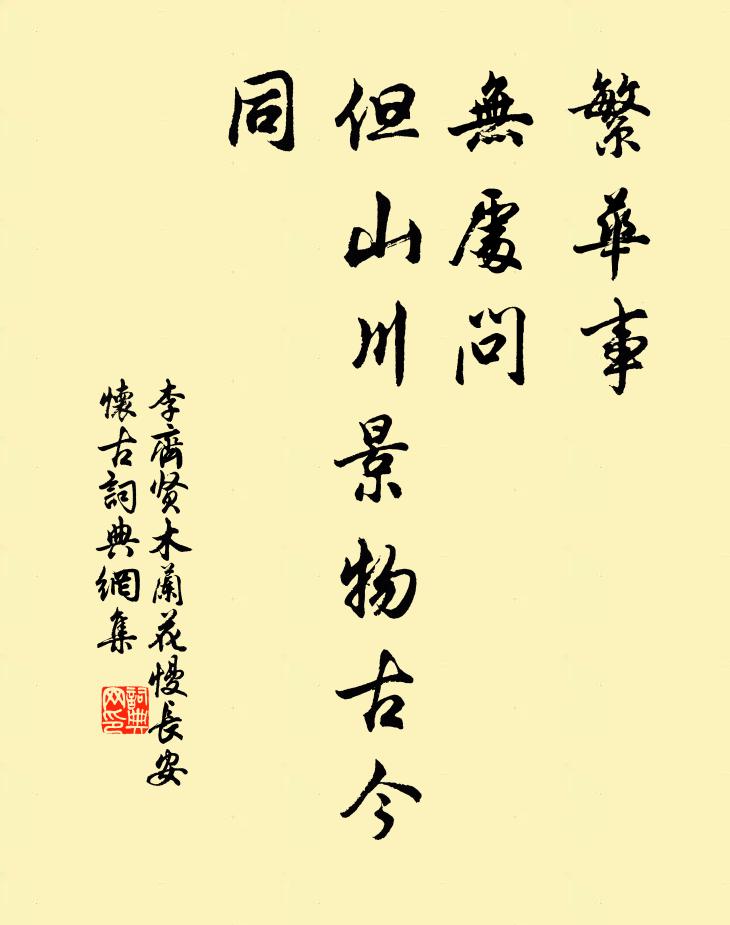 繁華事
無處問
但山川景物古今
同
李齊贤木蘭花慢長安
懷古詞典網集
詞典
网印